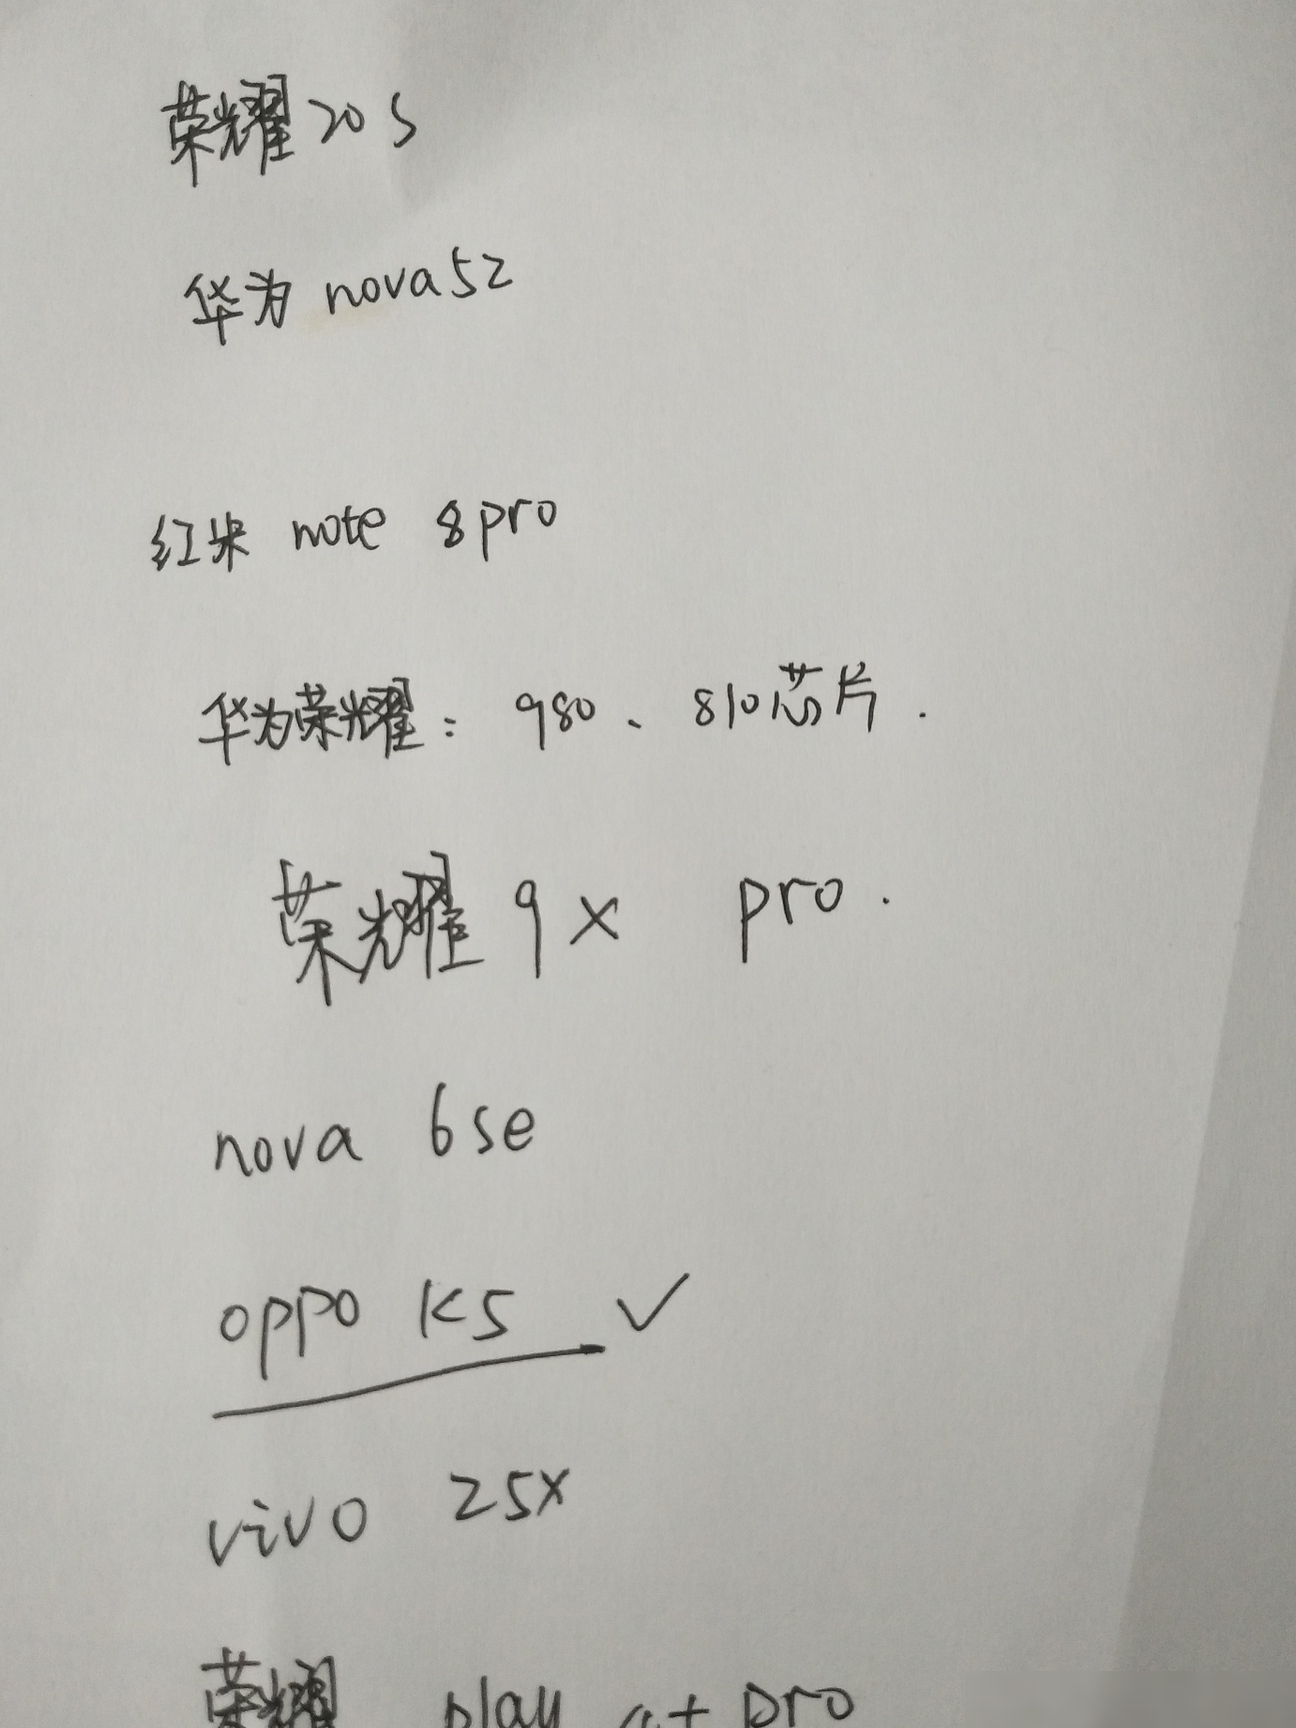 荣耀20S
华为 nova5z
红米 note 8pro
华为荣耀：980、810芯片.
荣耀9x pro.
nova 6se
oppo K5 ✓
vivo Z5x
荣耀 play pro